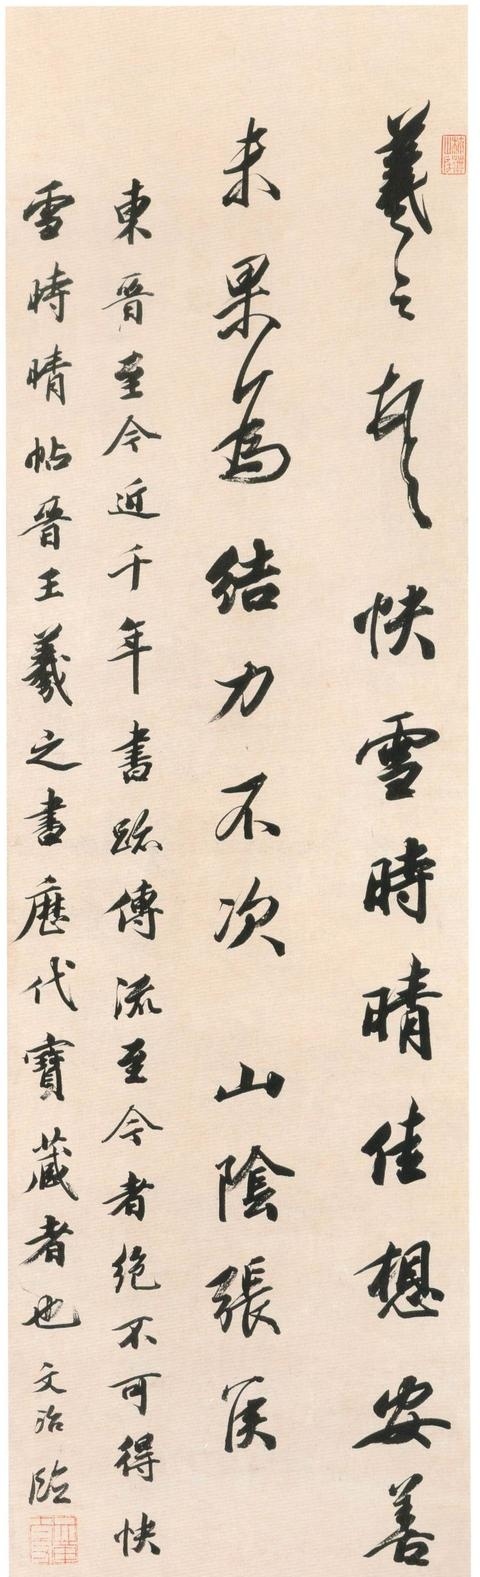 羲之頓首快雪時晴佳想安善
未果為結力不次 山陰張侯
東晉至今近千年書跡傳流至今者絕不可得快
雪時晴帖晉王羲之書歷代寶藏者也 文治臨